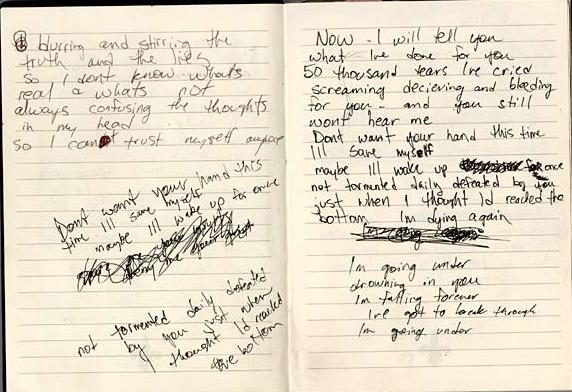 blurring and stirring the
truth and the lies
so I dont know whats
real a whats not
always confusing the thoughts
in my head
so I cant trust myself anymore
Dont want your hand this
time Ill save myself
maybe Ill wake up for once
not tormented daily defeated
by you just when
thought Id reached
bottom
Now I will tell you
what Ive done for you
50 thousand tears Ive cried
screaming decieving and bleeding
for you - and you still
wont hear me
Dont want your hand this time
Ill save myself
maybe Ill wake up for once
not tormented daily defeated by you
just when I thought Id reached the
bottom Im dying again
Im going under
drowning in you
Im falling forever
Ive got to break through
Im going under